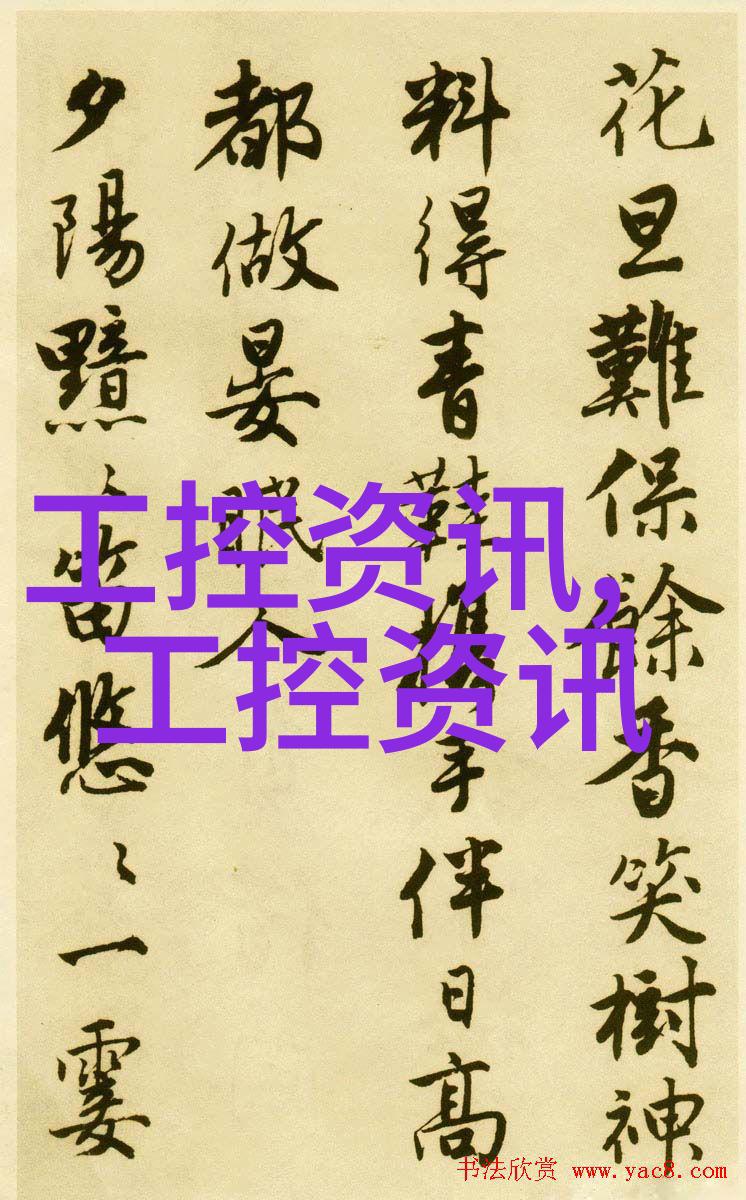 花旦難保餘香笑樹神
料得青鞋携手伴日高
都做晏眠人
夕陽黯〻笛悠〻一霎
工控资讯,
工控资讯
书法欣赏 www.yac8.com